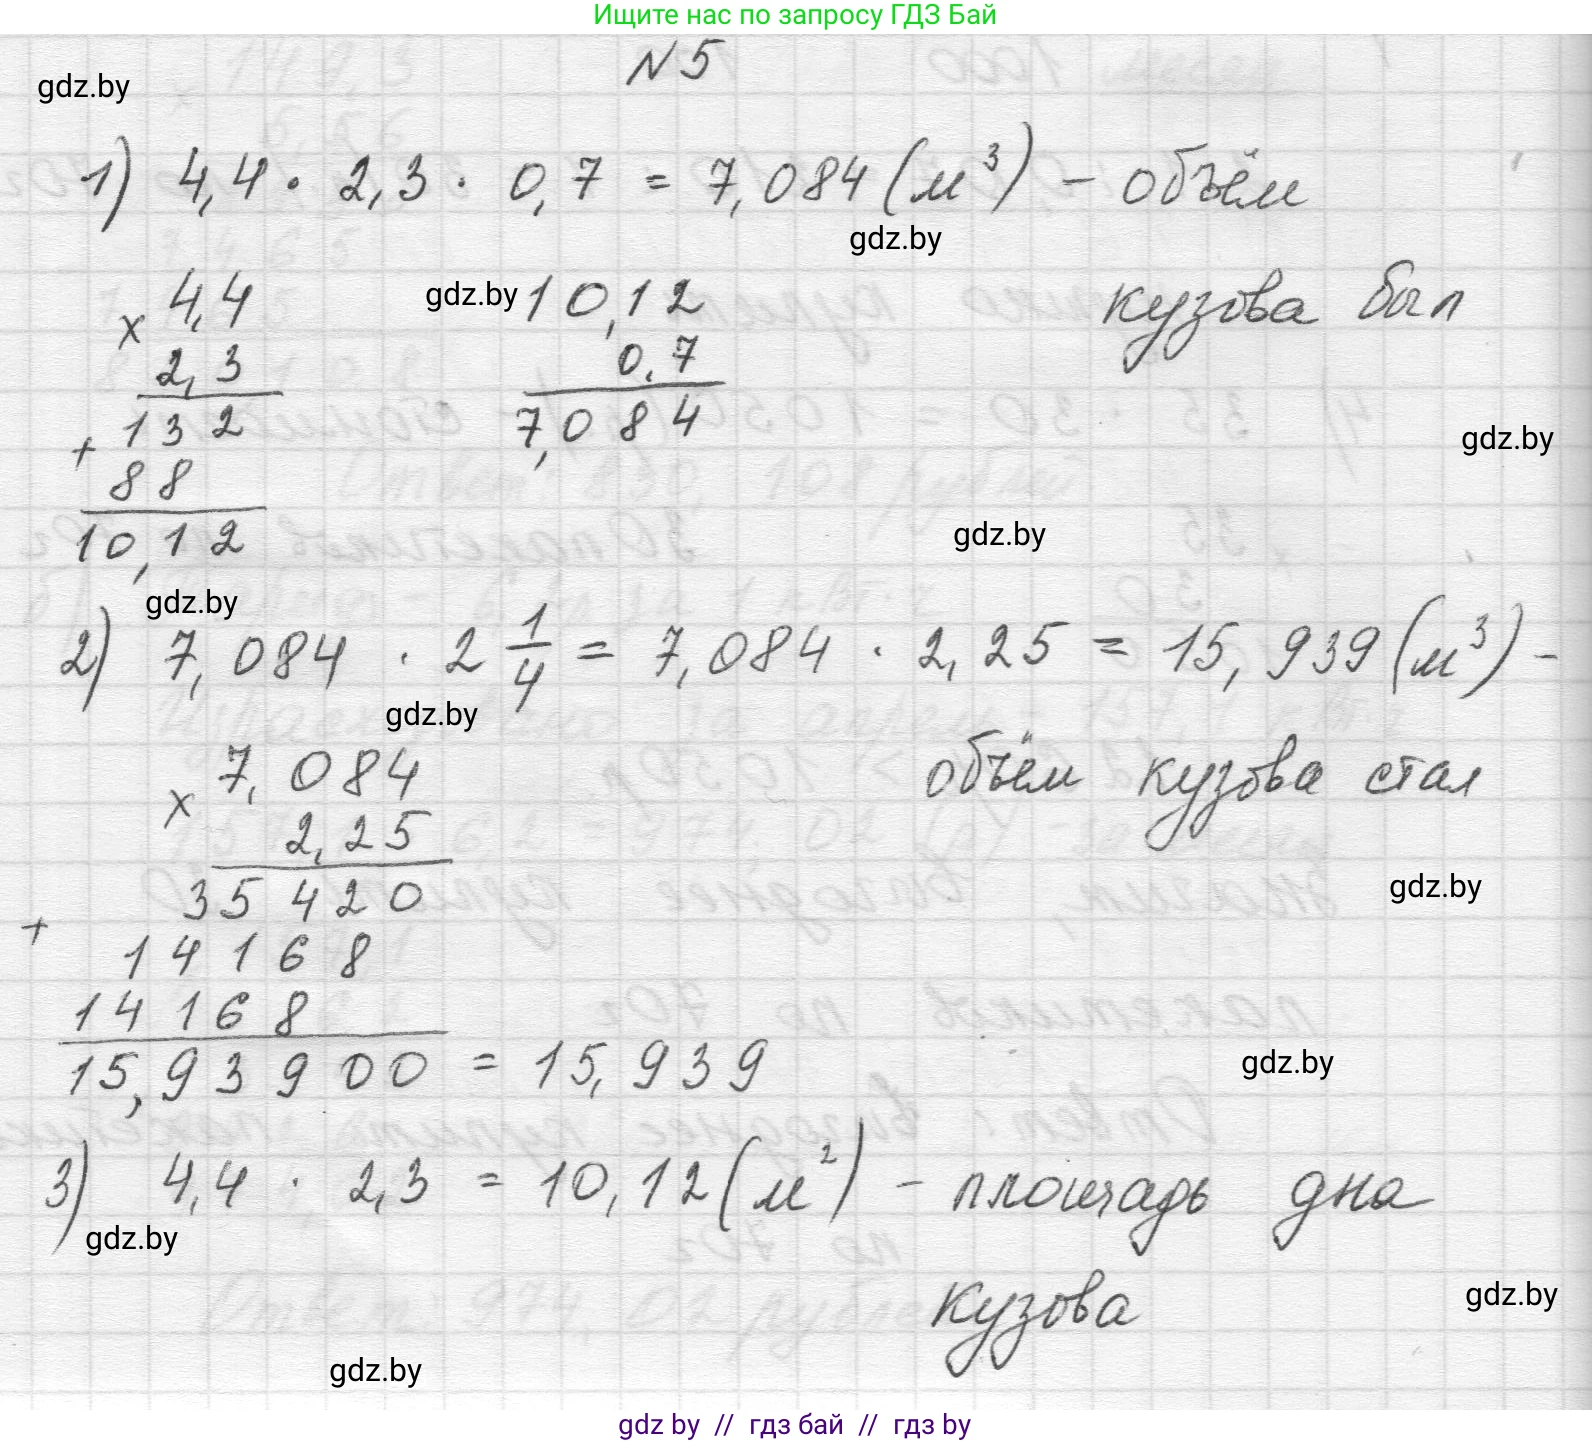 Ищите нас по запросу ГДЗ Бай
N 5
gdz.by
1) 4,4 · 2,3 · 0,7 = 7,084 (м³) – объём
gdz.by
кузова был
x 4,4
2,3
132
+ 88
10,12
gdz.by
10,12
0,7
7,084
gdz.by
gdz.by
gdz.by
2) 7,084 · 2 1/4 = 7,084 · 2,25 = 15,939 (м³) –
gdz.by
объём кузова стал
x 7,084
2,25
35420
+ 14168
14168
15,93900 = 15,939
gdz.by
gdz.by
3) 4,4 · 2,3 = 10,12 (м²) – площадь дна
gdz.by
кузова
gdz.by
gdz.by
gdz by // гдз бай // гдз by